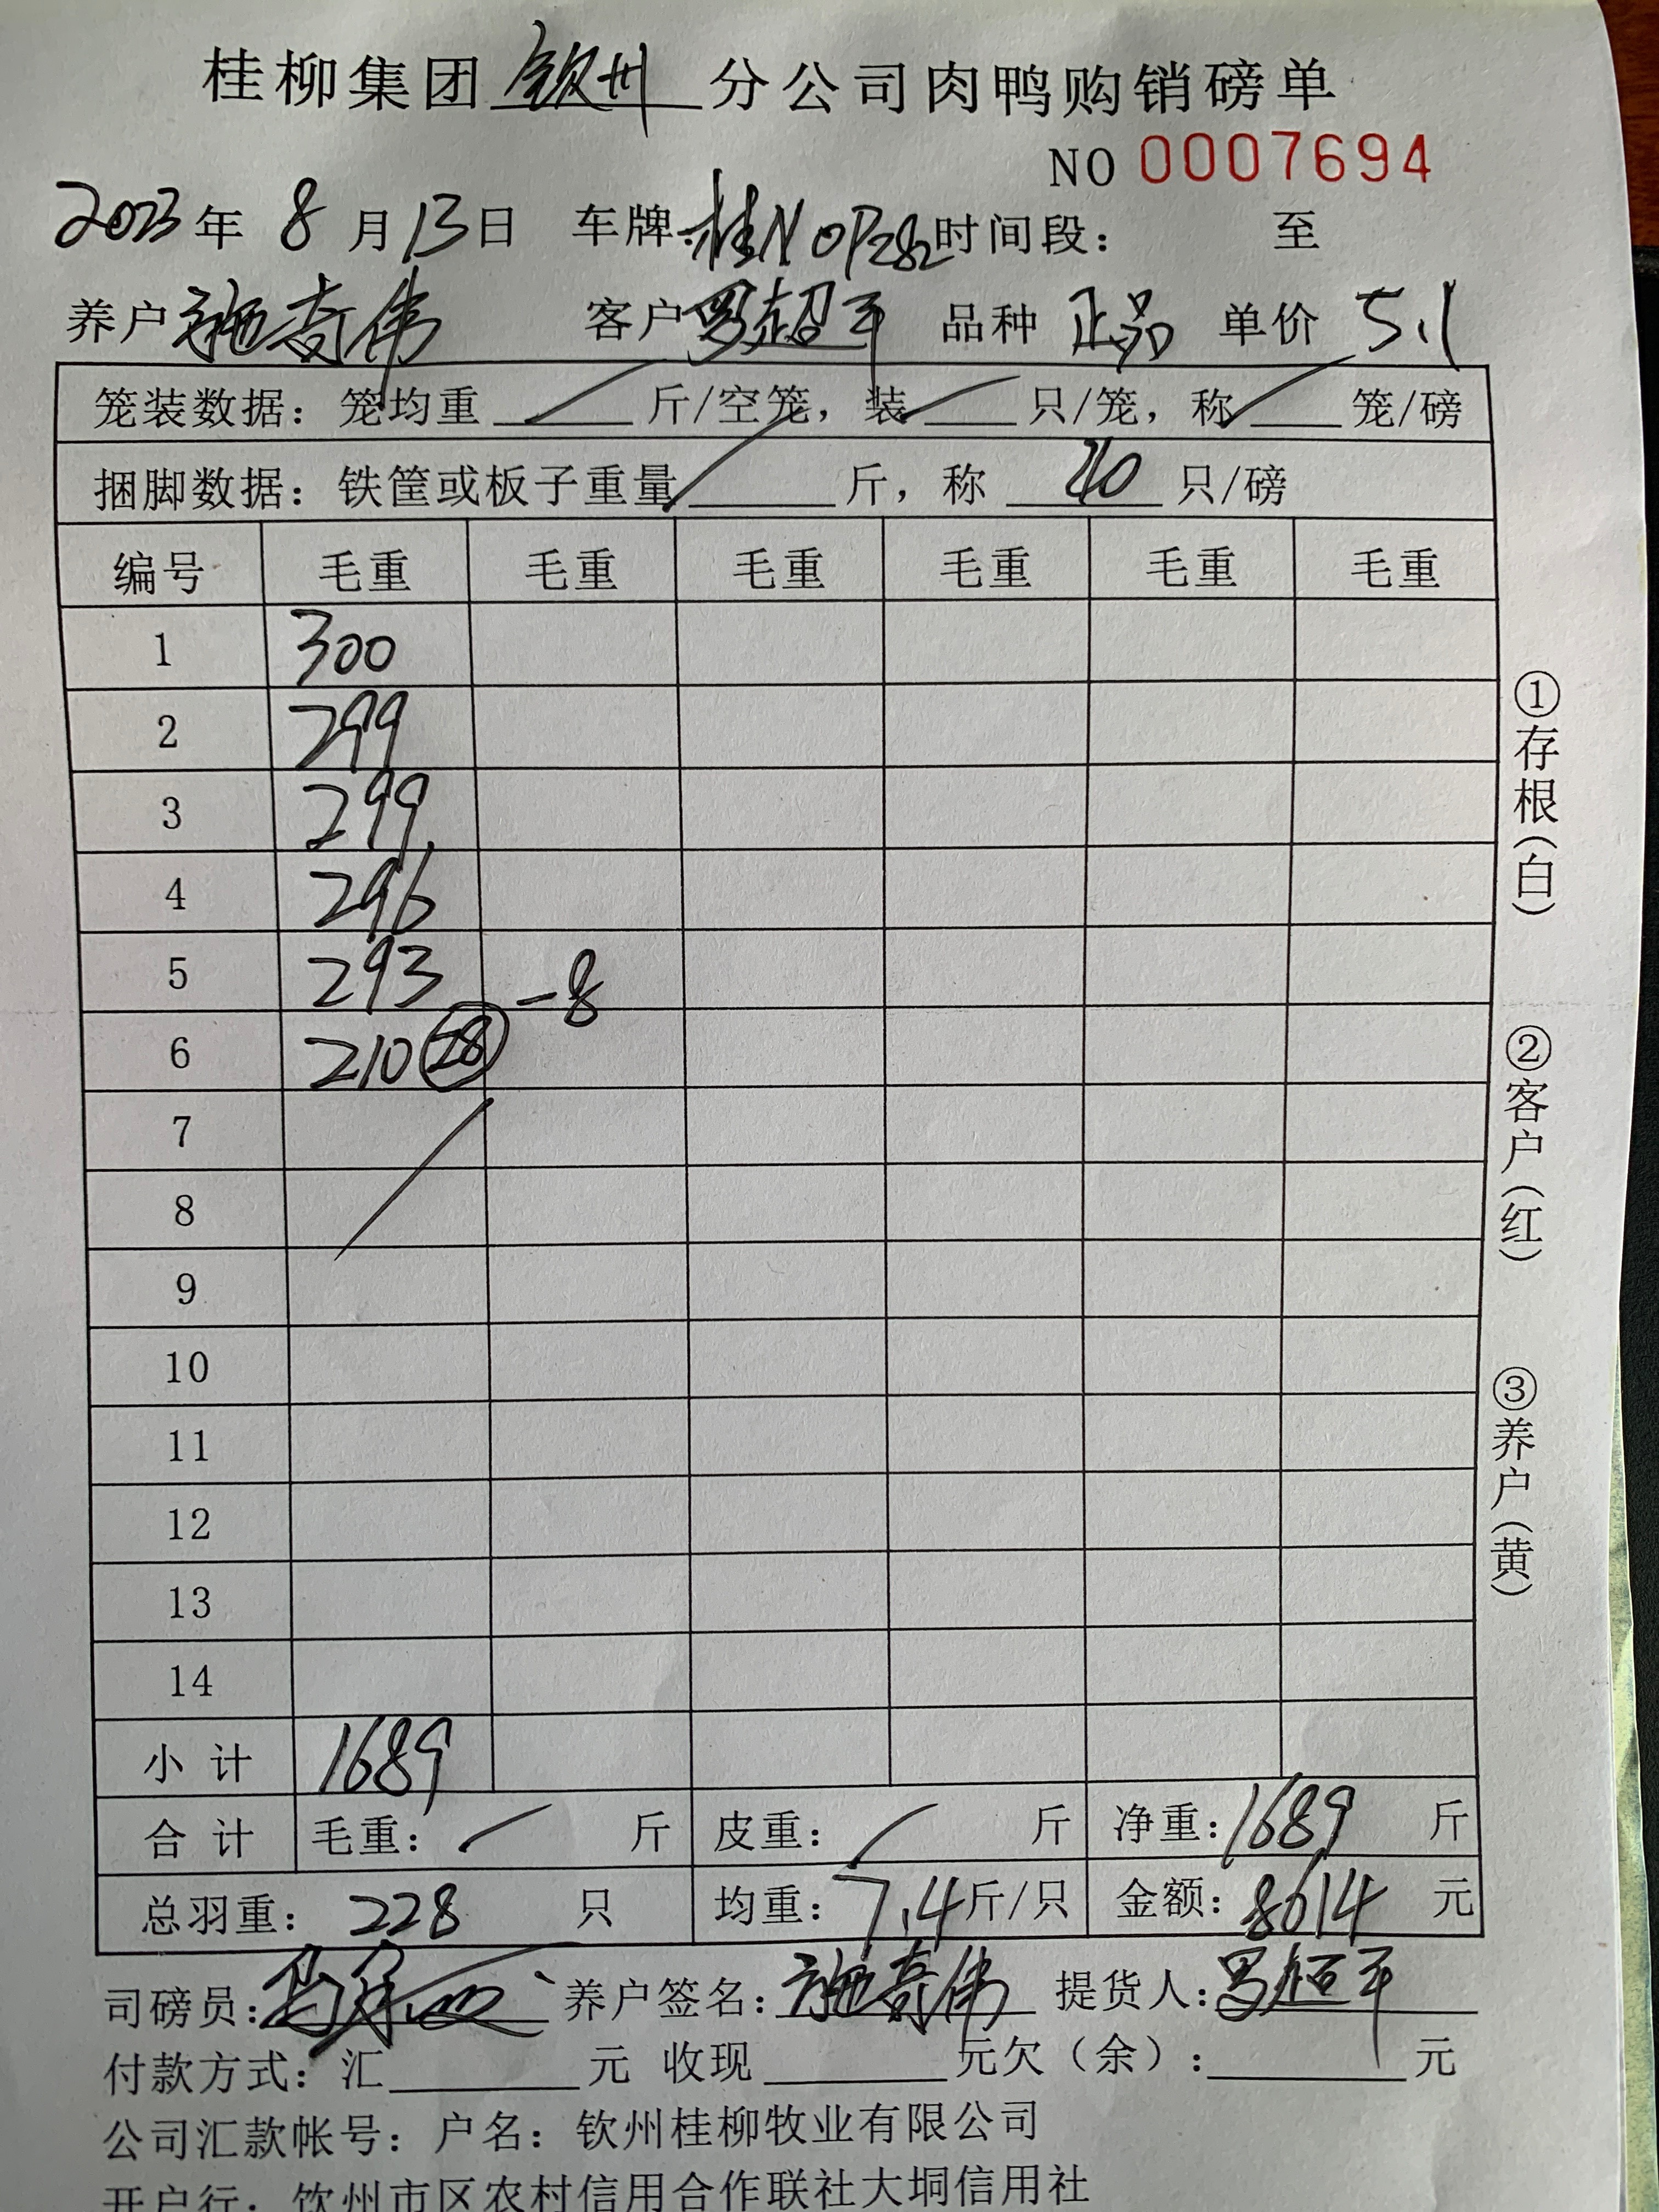 桂柳集团 钦州 分公司肉鸭购销磅单
NO 0007694
2023年 8月13日 车牌:桂N 0P282 时间段: 至
养户 施奇伟 客户 罗超平 品种 正品 单价 5.1
笼装数据:笼均重 / 斤/空笼,装 / 只/笼,称 / 笼/磅
捆脚数据:铁筐或板子重量 / 斤,称 40 只/磅
编号 毛重 毛重 毛重 毛重 毛重 毛重
1 300
2 299
3 299
4 296
5 293
6 210 28 -8
7
8
9
10
11
12
13
14
小计 1689
合计 毛重: / 斤 皮重: / 斤 净重:1689 斤
总羽重: 228 只 均重:7.4斤/只 金额:8614 元
司磅员: 养户签名:施奇伟 提货人:罗超平
付款方式:汇 元 收现 元欠(余): 元
公司汇款帐号:户名:钦州桂柳牧业有限公司
开户行:钦州市区农村信用合作联社大垌信用社
①存根(白)
②客户(红)
③养户(黄)